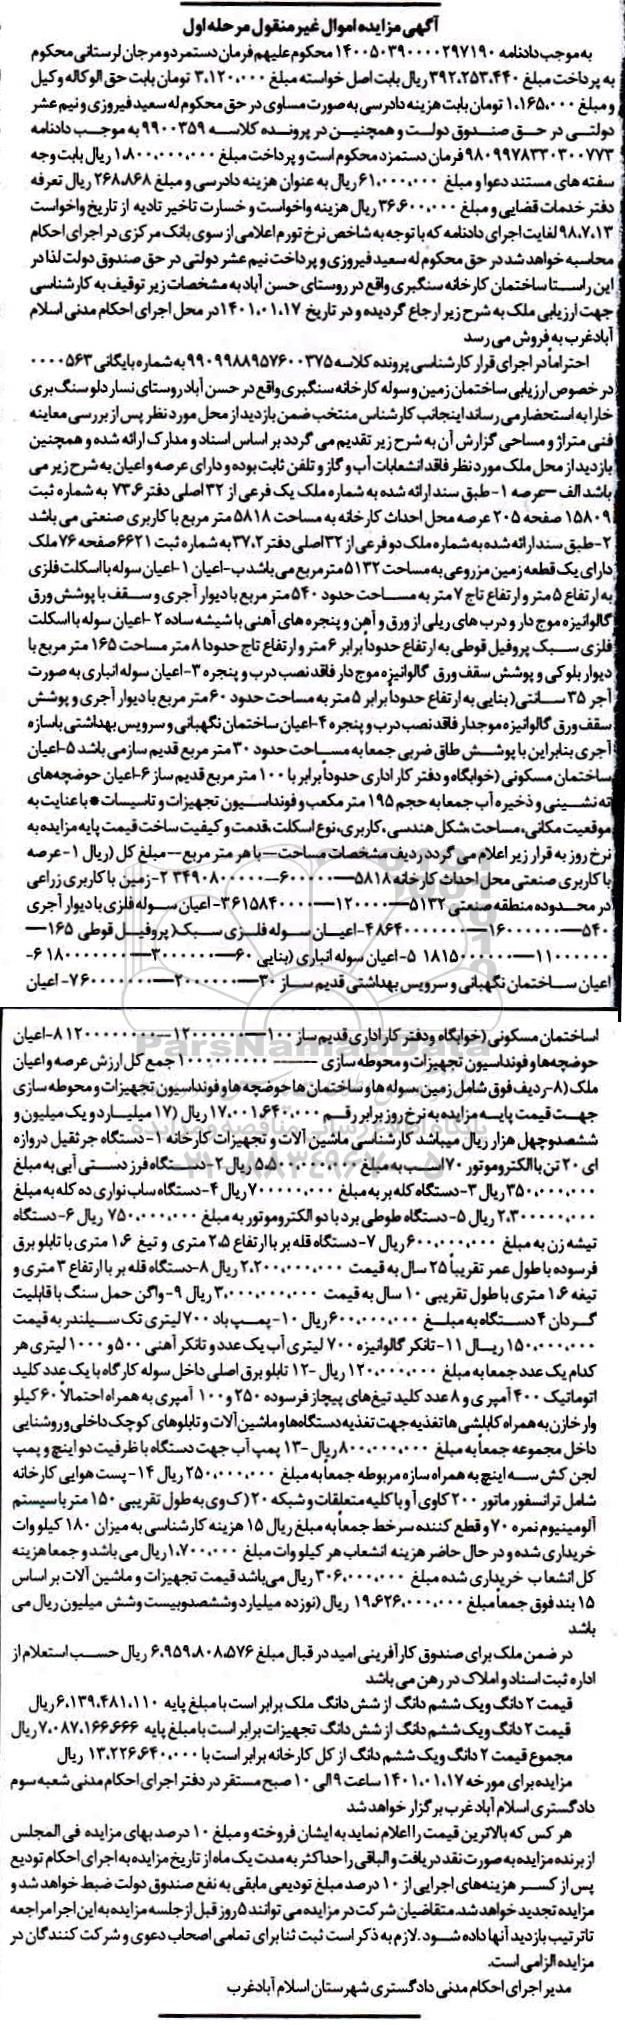 آگهی مزایده اموال غیر منقول مرحله اول
به موجب دادنامه ۱۴۰۰۵۰۳۹۰۰۰۰۲۹۷۱۹۰ محکوم علیهم فرمان دستمرد و مرجان لرستانی محکوم
به پرداخت مبلغ ۳۹۲،۲۵۳،۴۴۰ ریال بابت اصل خواسته مبلغ ۳،۱۲۰،۰۰۰ تومان بابت حق الوکاله وکیل
و مبلغ ۱،۱۶۵،۰۰۰ تومان بابت هزینه دادرسی به صورت مساوی در حق محکوم له سعید فیروزی و نیم عشر
دولتی در حق صندوق دولت و همچنین در پرونده کلاسه ۹۹۰۰۳۵۹ به موجب دادنامه
۹۸۰۹۹۷۸۳۳۰۳۰۰۷۷۳ فرمان دستمزد محکوم است و پرداخت مبلغ ۱،۸۰۰،۰۰۰،۰۰۰ ریال بابت وجه
سفته های مستند دعوا و مبلغ ۶۱،۰۰۰،۰۰۰ ریال به عنوان هزینه دادرسی و مبلغ ۲۶۸،۸۶۸ ریال تعرفه
دفتر خدمات قضایی و مبلغ ۳۶،۶۰۰،۰۰۰ ریال هزینه واخواست و خسارت تاخیر تادیه از تاریخ واخواست
۹۸،۷،۱۳ لغایت اجرای دادنامه که با توجه به شاخص نرخ تورم اعلامی از سوی بانک مرکزی در اجرای احکام
محاسبه خواهد شد در حق محکوم له سعید فیروزی و پرداخت نیم عشر دولتی در حق صندوق دولت لذا در
این راستا ساختمان کارخانه سنگبری واقع در روستای حسن آباد به مشخصات زیر توقیف به کارشناسی
جهت ارزیابی ملک به شرح زیر ارجاع گردیده و در تاریخ ۱۴۰۱،۰۱،۱۷ در محل اجرای احکام مدنی اسلام
آباد غرب به فروش می رسد
احتراماً در اجرای قرار کارشناسی پرونده کلاسه ۹۹۰۹۹۸۸۹۵۷۶۰۰۳۷۵ به شماره بایگانی ۰۰۰۰۵۶۳
در خصوص ارزیابی ساختمان زمین و سوله کارخانه سنگبری واقع در حسن آباد روستای نسار دلو سنگ بری
خارا به استحضار می رساند اینجانب کارشناس منتخب ضمن بازدید از محل مورد نظر پس از بررسی معاینه
فنی متراژ و مساحی گزارش آن به شرح زیر تقدیم می گردد بر اساس اسناد و مدارک ارائه شده و همچنین
بازدید از محل ملک مورد نظر فاقد انشعابات آب و گاز و تلفن ثابت بوده و دارای عرصه و اعیان به شرح زیر می
باشد الف –عرصه ۱- طبق سند ارائه شده به شماره ملک یک فرعی از ۳۲ اصلی دفتر ۷۳،۶ به شماره ثبت
۱۵۸۰۹ صفحه ۲۰۵ عرصه محل احداث کارخانه به مساحت ۵۸۱۸ متر مربع با کاربری صنعتی می باشد
۲- طبق سند ارائه شده به شماره ملک دو فرعی از ۳۲ اصلی دفتر ۳۷،۲ به شماره ثبت ۶۶۲۱ صفحه ۷۶ ملک
دارای یک قطعه زمین مزروعی به مساحت ۵۱۳۲ متر مربع می باشد ب- اعیان ۱- اعیان سوله با اسکلت فلزی
به ارتفاع ۵ متر و ارتفاع تاج ۷ متر به مساحت حدود ۵۴۰ متر مربع با دیوار آجری و سقف با پوشش ورق
گالوانیزه موج دار و درب های ریلی از ورق و آهن و پنجره های آهنی با شیشه ساده ۲- اعیان سوله با اسکلت
فلزی سبک پروفیل قوطی به ارتفاع حدوداً برابر ۶ متر و ارتفاع تاج حدودا ۸ متر مساحت ۱۶۵ متر مربع با
دیوار بلوکی و پوشش سقف ورق گالوانیزه موج دار فاقد نصب درب و پنجره ۳- اعیان سوله انباری به صورت
آجر ۳۵ سانتی (بنایی به ارتفاع حدوداً برابر ۵ متر به مساحت حدود ۶۰ متر مربع با دیوار آجری و پوشش
سقف ورق گالوانیزه موجدار فاقد نصب درب و پنجره ۴- اعیان ساختمان نگهبانی و سرویس بهداشتی با سازه
آجری بنابراین با پوشش طاق ضربی جمعا به مساحت حدود ۳۰ متر مربع قدیم ساز می باشد ۵- اعیان
ساختمان مسکونی (خوابگاه و دفتر کار اداری حدوداً برابر با ۱۰۰ متر مربع قدیم ساز ۶- اعیان حوضچه های
ته نشینی و ذخیره آب جمعا به حجم ۱۹۵ متر مکعب و فونداسیون تجهیزات و تاسیسات * با عنایت به
موقعیت مکانی، مساحت، شکل هندسی، کاربری، نوع اسکلت، قدمت و کیفیت ساخت قیمت پایه مزایده به
نرخ روز به قرار زیر اعلام می گردد ردیف مشخصات مساحت—با هر متر مربع—مبلغ کل (ریال ۱- عرصه
با کاربری صنعتی محل احداث کارخانه ۵۸۱۸—۶۰۰۰۰۰—۳۴۹۰۸۰۰۰۰۰ ۲- زمین با کاربری زراعی
در محدوده منطقه صنعتی ۵۱۳۲—۱۲۰۰۰۰—۶۱۵۸۴۰۰۰۰ ۳- اعیان سوله فلزی با دیوار آجری
۵۴۰—۱۶۰۰۰۰۰۰—۸۶۴۰۰۰۰۰۰۰ ۴- اعیان سوله فلزی سبک (پروفیل قوطی ۱۶۵—
۱۱۰۰۰۰۰۰—۱۸۱۵۰۰۰۰۰۰ ۵- اعیان سوله انباری (بنایی ۶۰—۳۰۰۰۰۰۰—۱۸۰۰۰۰۰۰۰ ۶-
اعیان ساختمان نگهبانی و سرویس بهداشتی قدیم ساز ۳۰—۲۰۰۰۰۰۰—۶۰۰۰۰۰۰۰ ۷- اعیان
اساختمان مسکونی (خوابگاه و دفتر کار اداری قدیم ساز ۱۰۰—۱۲۰۰۰۰۰۰—۱۲۰۰۰۰۰۰۰۰ ۸- اعیان
حوضچه ها و فونداسیون تجهیزات و محوطه سازی —— ۱۰۰۰۰۰۰۰۰۰ جمع کل ارزش عرصه و اعیان
ملک (۸- ردیف فوق شامل زمین، سوله ها و ساختمان ها حوضچه ها و فونداسیون تجهیزات و محوطه سازی
جهت قیمت پایه مزایده به نرخ روز برابر رقم ۱۷،۰۰۱،۶۴۰،۰۰۰ ریال (۱۷ میلیارد و یک میلیون و
ششصد و چهل هزار ریال میباشد کارشناسی ماشین آلات و تجهیزات کارخانه ۱- دستگاه جرثقیل دروازه
ای ۲۰ تن با الکتروموتور ۷۰ اسب به مبلغ ۵،۵۰۰،۰۰۰،۰۰۰ ریال ۲- دستگاه فرز دستی آبی به مبلغ
۳۵۰،۰۰۰،۰۰۰ ریال ۳- دستگاه کله بر به مبلغ ۷۰۰،۰۰۰،۰۰۰ ریال ۴- دستگاه ساب نواری ده کله به مبلغ
۲،۳۰۰،۰۰۰،۰۰۰ ریال ۵- دستگاه طوطی برد با دو الکتروموتور به مبلغ ۷۵۰،۰۰۰،۰۰۰ ریال ۶- دستگاه
تیشه زن به مبلغ ۶۰۰،۰۰۰،۰۰۰ ریال ۷- دستگاه قله بر با ارتفاع ۲،۵ متری و تیغ ۱،۶ متری با تابلو برق
فرسوده با طول عمر تقریباً ۲۵ سال به قیمت ۲،۲۰۰،۰۰۰،۰۰۰ ریال ۸- دستگاه قله بر با ارتفاع ۳ متری و
تیغه ۱،۶ متری با طول تقریبی ۱۰ سال به قیمت ۳،۰۰۰،۰۰۰،۰۰۰ ریال ۹- واگن حمل سنگ با قابلیت
گردان ۴ دستگاه به مبلغ ۶۰۰،۰۰۰،۰۰۰ ریال ۱۰- پمپ باد ۷۰۰ لیتری تک سیلندر به قیمت
۱۵۰،۰۰۰،۰۰۰ ریال ۱۱- تانکر گالوانیزه ۷۰۰ لیتری آب یک عدد و تانکر آهنی ۵۰۰ و ۱۰۰۰ لیتری هر
کدام یک عدد جمعا به مبلغ ۱۲۰،۰۰۰،۰۰۰ ریال -۱۲ تابلو برق اصلی داخل سوله کارگاه با یک عدد کلید
اتوماتیک ۴۰۰ آمپری و ۸ عدد کلید تیغ های پیچاز فرسوده ۲۵۰ و ۱۰۰ آمپری به همراه احتمالاً ۶۰ کیلو
وار خازن به همراه کابلشی ها تغذیه جهت تغذیه دستگاه ها و ماشین آلات و تابلوهای کوچک داخلی و روشنایی
داخل مجموعه جمعاً به مبلغ ۸۰۰،۰۰۰،۰۰۰ ریال -۱۳ پمپ آب جهت دستگاه با ظرفیت دو اینچ و پمپ
لجن کش سه اینچ به همراه سازه مربوطه جمعاً به مبلغ ۲۵۰،۰۰۰،۰۰۰ ریال ۱۴- پست هوایی کارخانه
شامل ترانسفور ماتور ۲۰۰ کاوی آ و با کلیه متعلقات و شبکه ۲۰ (ک وی به طول تقریبی ۱۵۰ متر با سیستم
آلومینیوم نمره ۷۰ و قطع کننده سر خط جمعاً به مبلغ ریال ۱۵ هزینه کارشناسی به میزان ۱۸۰ کیلو وات
خریداری شده و در حال حاضر هزینه انشعاب هر کیلو وات مبلغ ۱،۷۰۰،۰۰۰ ریال می باشد و جمعا هزینه
کل انشعاب خریداری شده مبلغ ۳۰۶،۰۰۰،۰۰۰ ریال می باشد قیمت تجهیزات و ماشین آلات بر اساس
۱۵ بند فوق جمعاً مبلغ ۱۹،۶۲۶،۰۰۰،۰۰۰ ریال (نوزده میلیارد و ششصد و بیست و شش میلیون ریال می
باشد
در ضمن ملک برای صندوق کارآفرینی امید در قبال مبلغ ۶،۹۵۹،۸۰۸،۵۷۶ ریال حسب استعلام از
اداره ثبت اسناد و املاک در رهن می باشد
قیمت ۲ دانگ و یک ششم دانگ از شش دانگ ملک برابر است با مبلغ پایه ۶،۱۳۹،۴۸۱،۱۱۰ ریال
قیمت ۲ دانگ و یک ششم دانگ از شش دانگ تجهیزات برابر است با مبلغ پایه ۷،۰۸۷،۱۶۶،۶۶۶ ریال
مجموع قیمت ۲ دانگ و یک ششم دانگ از کل کارخانه برابر است با ۱۳،۲۲۶،۶۴۰،۰۰۰ ریال
مزایده برای مورخه ۱۴۰۱،۰۱،۱۷ ساعت ۹ الی ۱۰ صبح مستقر در دفتر اجرای احکام مدنی شعبه سوم
دادگستری اسلام آباد غرب برگزار خواهد شد
هر کس که بالاترین قیمت را اعلام نماید به ایشان فروخته و مبلغ ۱۰ درصد بهای مزایده فی المجلس
از برنده مزایده به صورت نقد دریافت و الباقی را حداکثر به مدت یک ماه از تاریخ مزایده به اجرای احکام تودیع
پس از کسر هزینه های اجرایی از ۱۰ درصد مبلغ تودیعی مابقی به نفع صندوق دولت ضبط خواهد شد و
مزایده تجدید خواهد شد. متقاضیان شرکت در مزایده می توانند ۵ روز قبل از جلسه مزایده به این اجرا مراجعه
تا ترتیب بازدید آنها داده شود. لازم به ذکر است ثبت ثنا برای تمامی اصحاب دعوی و شرکت کنندگان در
مزایده الزامی است.
مدیر اجرای احکام مدنی دادگستری شهرستان اسلام آباد غرب